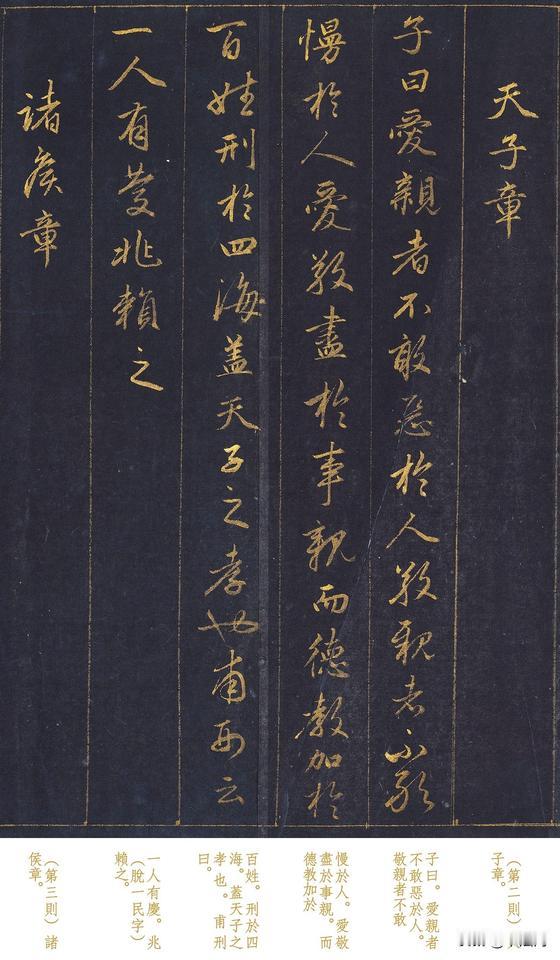 天子章
子曰愛親者不敢惡於人敬親者不敢
慢於人愛敬盡於事親而德教加於
百姓刑於四海蓋天子之孝也甫刑云
一人有慶兆賴之
諸侯章
（第二則）天
子章。
子曰。愛親者
不敢惡於人。
敬親者不敢
慢於人。愛敬
盡於事親。而
德教加於
百姓。刑於四
海。蓋天子之
孝也。甫刑
曰。
一人有慶。兆
（脫一民字）
賴之。
（第三則）諸
侯章。